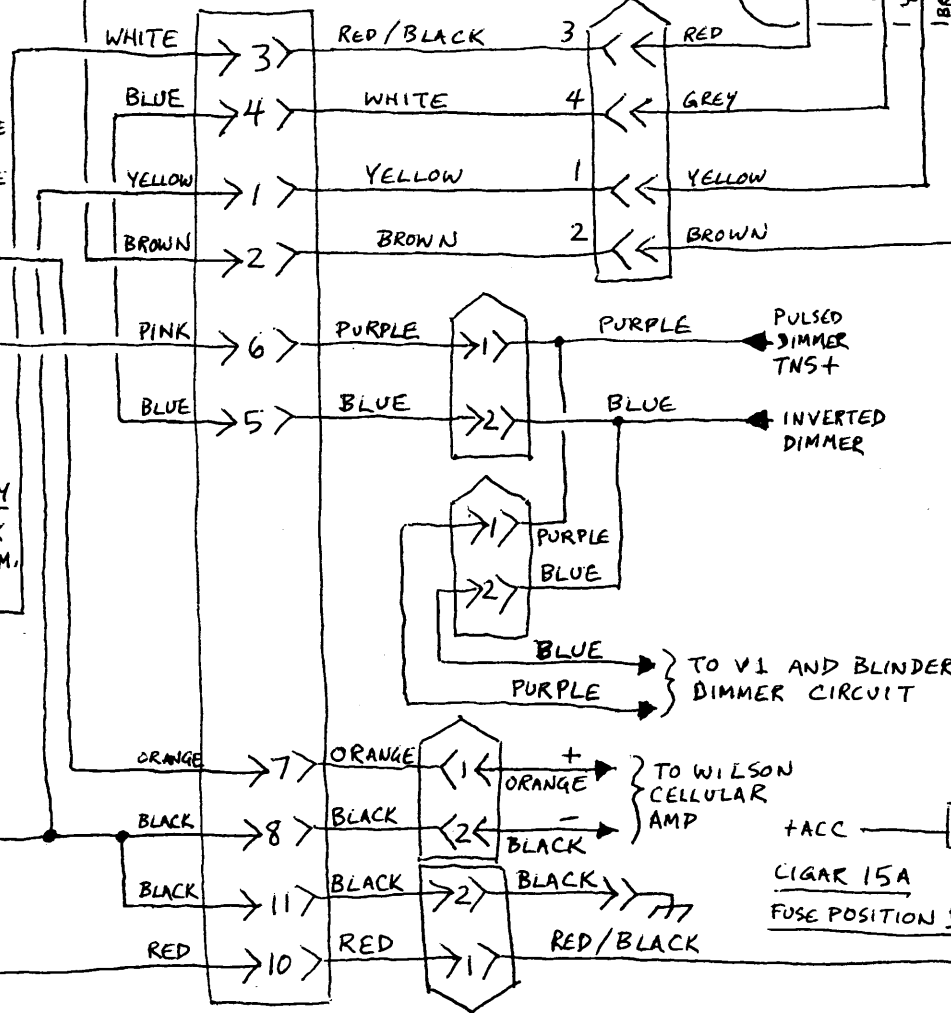 WHITE 3 RED/BLACK 3 RED
BLUE 4 WHITE 4 GREY
YELLOW 1 YELLOW 1 YELLOW
BROWN 2 BROWN 2 BROWN
PINK 6 PURPLE 1 PURPLE
PULSED
DIMMER
TNS+
BLUE 5 BLUE 2 BLUE
INVERTED
DIMMER
1 PURPLE
2 BLUE
BLUE
PURPLE
TO V1 AND BLINDER
DIMMER CIRCUIT
ORANGE 7 ORANGE 1 + ORANGE
BLACK 8 BLACK 2 - BLACK
TO WILSON
CELLULAR
AMP
+ACC
CIGAR 15A
FUSE POSITION
BLACK 11 BLACK 2 BLACK
RED 10 RED 1 RED/BLACK